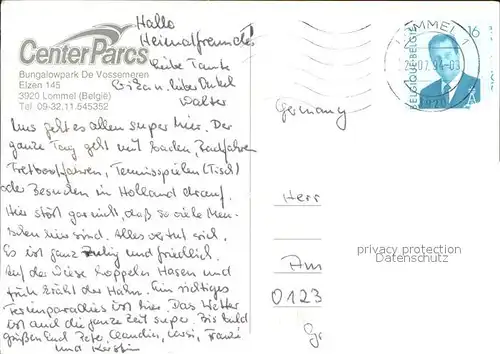 Hallo
Heimatfreunde!
Liebe Tante
Erika u. lieber Onkel
Walter
Center Parcs
Bungalowpark De Vossemeren
Elzen 145
3920 Lommel (België)
Tel 09-32.11.545352
Uns geht es allen super hier. Der
ganze Tag geht mit baden, Radfahren
Tretbootfahren, Tennisspielen (Tisch)
oder Besuchen in Holland drauf.
Hier stört gar nicht, daß so viele Men-
schen hier sind. Alles vertut sich.
Es ist ganz ruhig und friedlich.
Auf der Wiese hoppeln Hasen und
früh kräht der Hahn. Ein richtiges
Ferienparadies ist hier. Das Wetter
ist auch die ganze Zeit super. Bis bald
grüßen Euch Pete, Claudia,
und Kerstin
LOMMEL 1
07.94-03
3920
16
BELGIQUE-BELGIË
A
Germany
Herr
Am
0123
privacy protection
Datenschutz